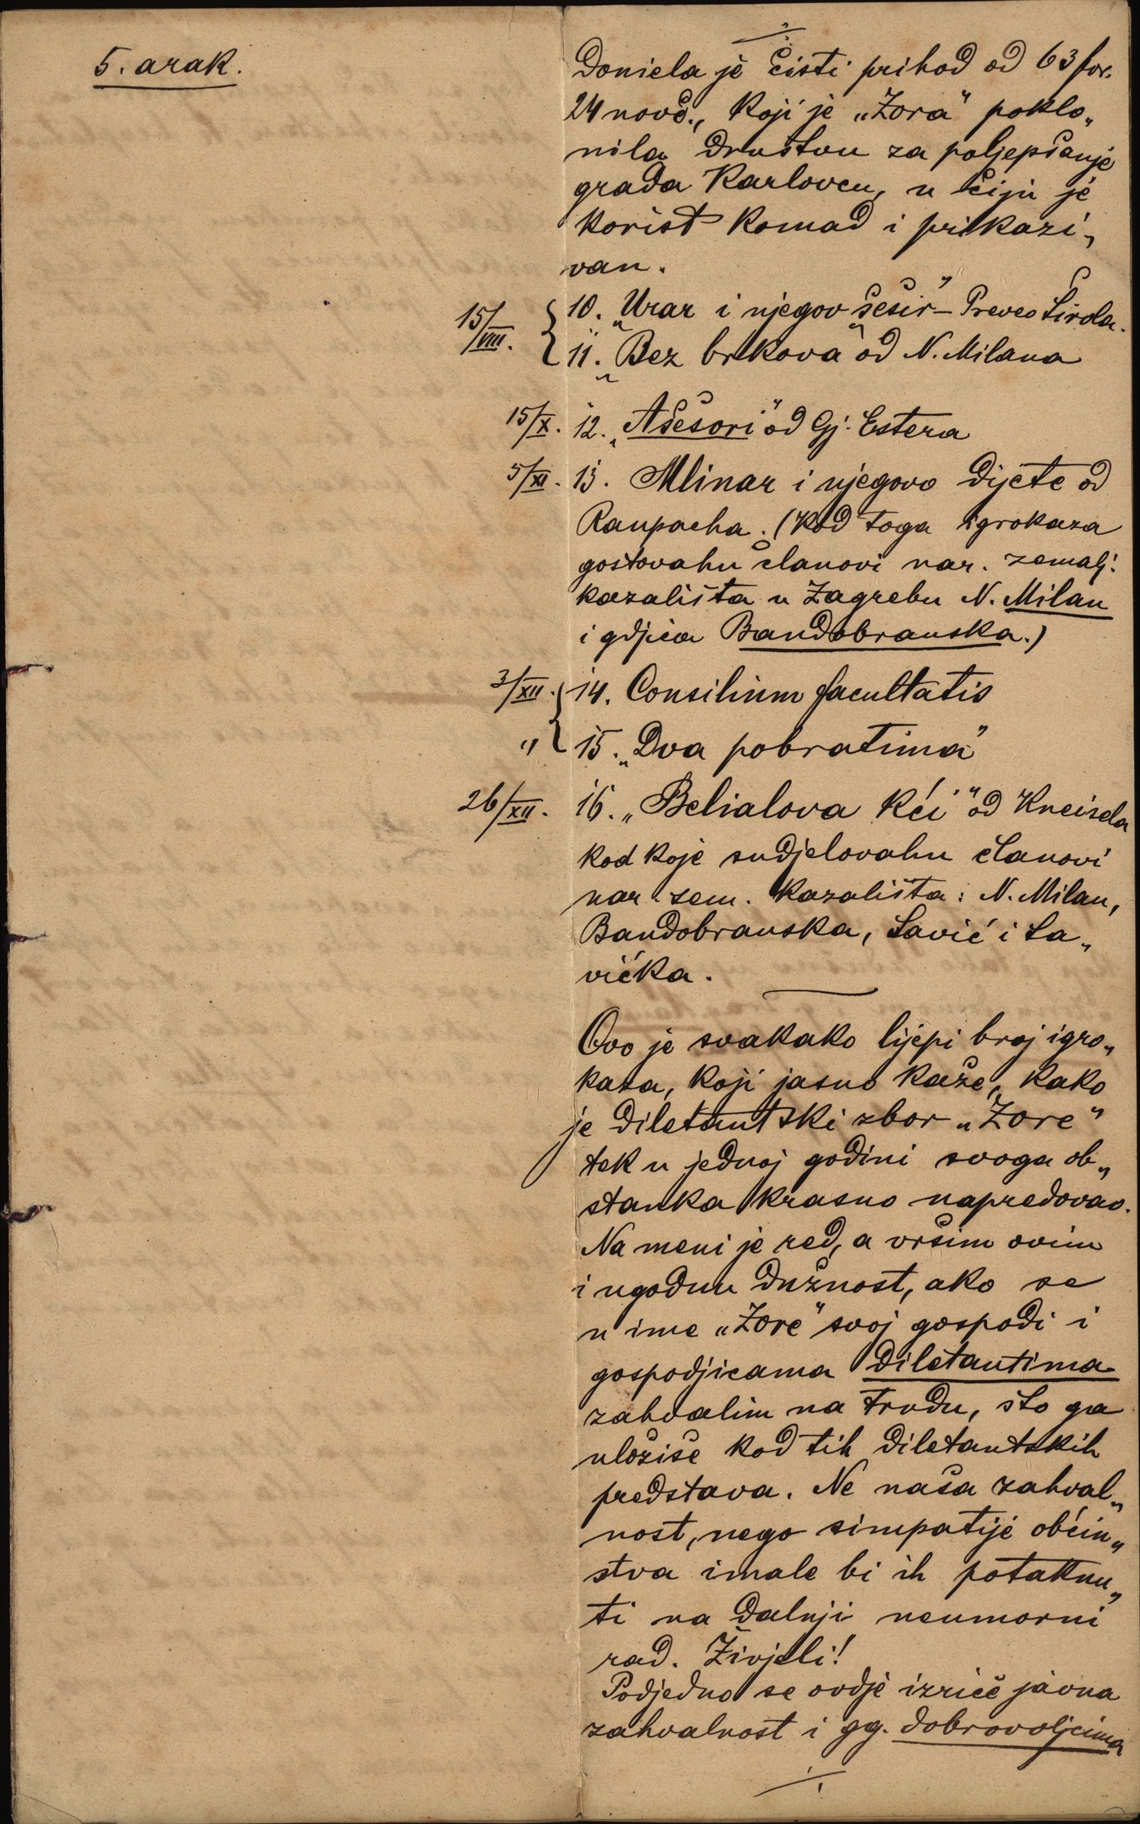 5. arak.
./.
Doniela je čisti prihod od 63 for.
24 novč., koji je „Zora" poklo„
nila Družtvu za poljepšanje
grada Karlovcu, u čiju je
korist komad i prikazi„
van.
15/VIII. 10. „Urar i njegov šešir" – Preveo Širola.
11. „Bez brkova" od N. Milana
15/X. 12. „Ašešori" od Gj. Estera
5/XI. 13. Mlinar i njegovo dijete od
Raupacha. (Kod toga igrokaza
gostovahu članovi nar. zemalj.
kazališta u Zagrebu N. Milan
i gdjica Bandobranska.)
3/XII. 14. Consilium facultatis
„ 15. „Dva pobratima"
26/XII. 16. „Belialova kći" od Kneisela
kod koje sudjelovahu članovi
nar. zem. kazališta: N. Milan,
Bandobranska, Savić i Sa„
vićka.
Ovo je svakako lijepi broj igro„
kaza, koji jasno kaže, kako
je diletantski zbor „Zore"
tek u jednoj godini svoga ob„
stanka krasno napredovao.
Na meni je red, a vršim ovim
i ugodnu dužnost, ako se
u ime „Zore" svoj gospodi i
gospodjicama diletantima
zahvalim na trudu, što ga
uložiše kod tih diletantskih
predstava. Ne naša zahval„
nost, nego simpatije obćin„
stva imale bi ih potaknu„
ti na dalnji neumorni
rad. Živjeli!
Podjedno se ovdje izriče javna
zahvalnost i gg. dobrovoljcima
./.